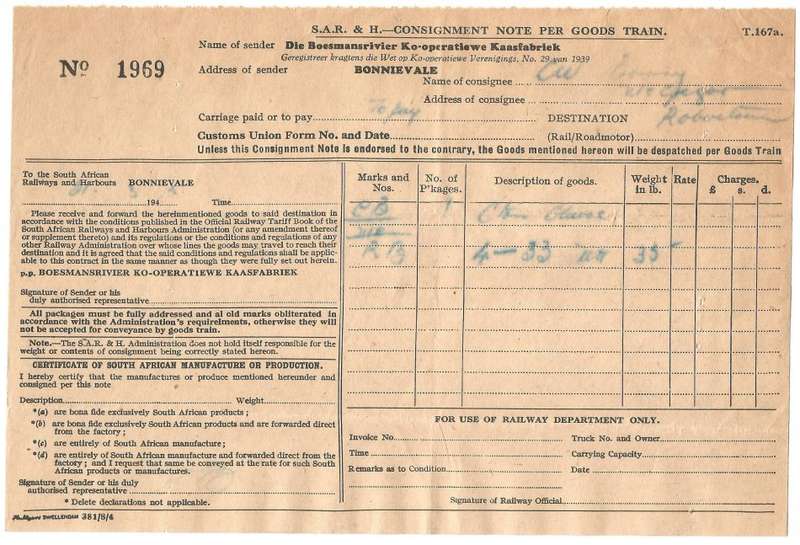 S.A.R. & H.—CONSIGNMENT NOTE PER GOODS TRAIN.
T.167a.
No 1969
Name of sender Die Boesmansrivier Ko-operatiewe Kaasfabriek
Geregistreer kragtens die Wet op Ko-operatiewe Verenigings, No. 29 van 1939
Address of sender BONNIEVALE
Name of consignee
Address of consignee
Carriage paid or to pay To pay
DESTINATION
Customs Union Form No. and Date
(Rail/Roadmotor)
Unless this Consignment Note is endorsed to the contrary, the Goods mentioned hereon will be despatched per Goods Train
To the South African
Railways and Harbours BONNIEVALE
194 Time
Please receive and forward the hereinmentioned goods to said destination in
accordance with the conditions published in the Official Railway Tariff Book of the
South African Railways and Harbours Administration (or any amendment thereof
or supplement thereto) and its regulations or the conditions and regulations of
any other Railway Administration over whose lines the goods may travel to reach their
destination and it is agreed that the said conditions and regulations shall be applic-
able to this contract in the same manner as though they were fully set out herein.
p.p. BOESMANSRIVIER KO-OPERATIEWE KAASFABRIEK
Signature of Sender or his
duly authorised representative
All packages must be fully addressed and al old marks obliterated in
accordance with the Administration's requirelments, otherwise they will
not be accepted for conveyance by goods train.
Note.—The S.A.R. & H. Administration does not hold itself responsible for the
weight or contents of consignment being correctly stated hereon.
CERTIFICATE OF SOUTH AFRICAN MANUFACTURE OR PRODUCTION.
I hereby certify that the manufactures or produce mentioned hereunder and
consigned per this note
Description Weight
*(a) are bona fide exclusively South African products;
*(b) are bona fide exclusively South African products and are forwarded direct
from the factory;
*(c) are entirely of South African manufacture;
*(d) are entirely of South African manufacture and forwarded direct from the
factory; and I request that same be conveyed at the rate for such South
African products or manufactures.
Signature of Sender or his duly
authorised representative
* Delete declarations not applicable.
SWELLENDAM 381/8/4
Marks and Nos. No. of P'kages. Description of goods. Weight in lb. Rate Charges. £ s. d.
1
R B 4 — 33 35
FOR USE OF RAILWAY DEPARTMENT ONLY.
Invoice No. Truck No. and Owner
Time Carrying Capacity
Remarks as to Condition Date
Signature of Railway Official